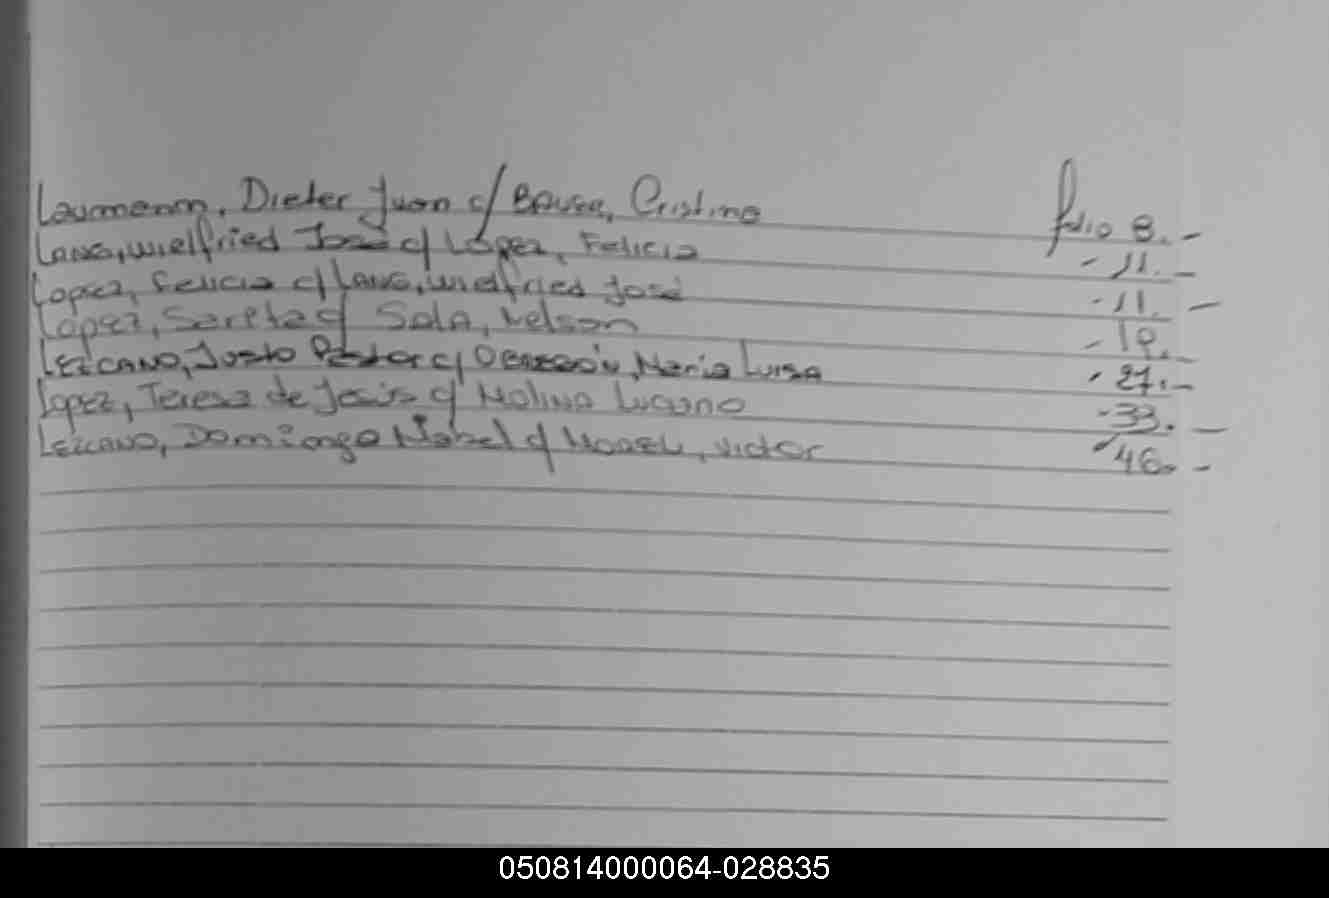 Laumann, Dieter Juan c/ Bauer, Cristina folio 8.-
Lang, Wielfried José c/ López, Felicia - 11. -
Lopez, Felicia c/ Lang, Wielfried José - 11. -
Lopez, Sarita c/ Sala, Nelson - 19. -
Lezcano, Justo Pastor c/ María Luisa - 27. -
Lopez, Teresa de Jesús c/ Molina Luciano - 33. -
Lezcano, Domionga Mabel c/ , Victor - 46. -
050814000064-028835